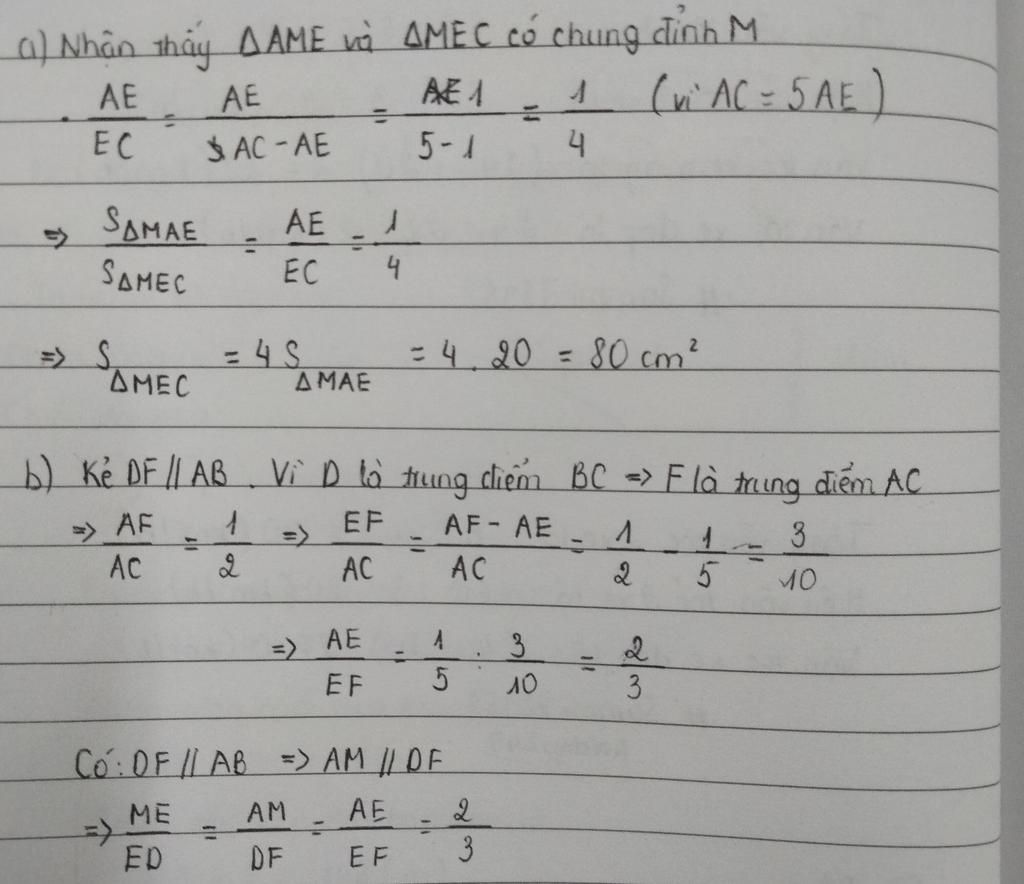 a) Nhận thấy ΔAME và ΔMEC có chung đỉnh M
. AE/EC = AE/(AC - AE) = 1/(5-1) = 1/4 (vì AC = 5AE)
=> SΔMAE/SΔMEC = AE/EC = 1/4
=> SΔMEC = 4 SΔMAE = 4 . 20 = 80 cm²
b) Kẻ DF // AB . Vì D là trung điểm BC => F là trung điểm AC
=> AF/AC = 1/2 => EF/AC = (AF - AE)/AC = 1/2 - 1/5 = 3/10
=> AE/EF = 1/5 : 3/10 = 2/3
Có: DF // AB => AM // DF
=> ME/ED = AM/DF = AE/EF = 2/3